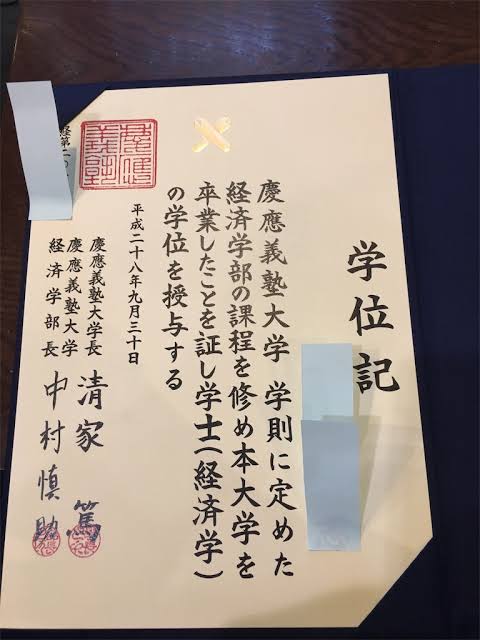 学位記
慶應義塾大学 学則に定めた
経済学部の課程を修め本大学を
卒業したことを証し学士(経済学)
の学位を授与する
平成二十八年九月三十日
慶應義塾大学長 清家 篤
慶應義塾大学
経済学部長 中村慎助
経第二
慶應義塾